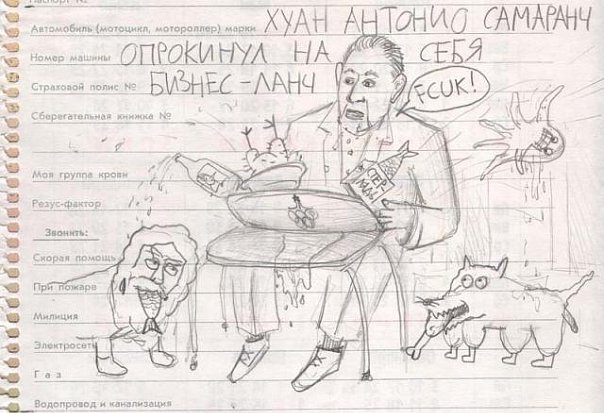 Паспорт №
Автомобиль (мотоцикл, мотороллер) марки ХУАН АНТОНИО САМАРАНЧ
Номер машины ОПРОКИНУЛ НА СЕБЯ
Страховой полис № БИЗНЕС-ЛАНЧ
FCUK!
Сберегательная книжка №
Моя группа крови
СТЕР-
ЛЯДЬ
Резус-фактор
Звонить:
Скорая помощь
При пожаре
Милиция
Электросеть
Газ
Водопровод и канализация